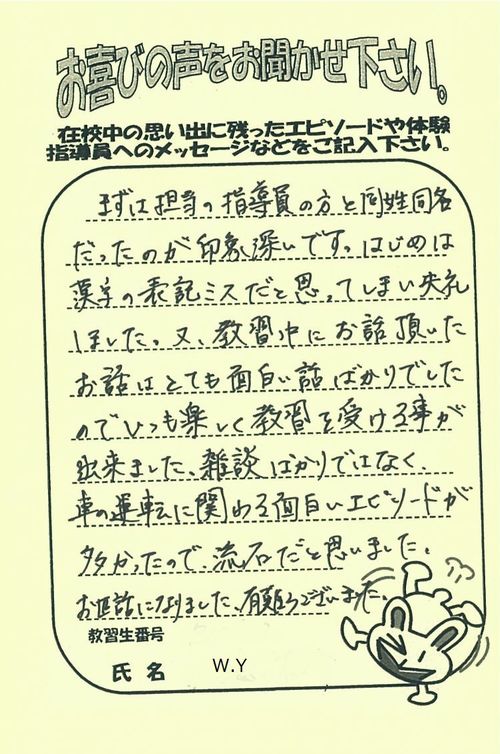 お喜びの声をお聞かせ下さい。
在校中の思い出に残ったエピソードや体験
指導員へのメッセージなどをご記入下さい。
まずは担当の指導員の方と同姓同名
だったのが印象深いです。はじめは
漢字の表記ミスだと思ってしまい失礼
しました。又、教習中にお話頂いた
お話はとても面白い話ばかりでした
のでいつも楽しく教習を受ける事が
出来ました。雑談ばかりではなく、
車の運転に関わる面白いエピソードが
多かったので、流石だと思いました。
お世話になりました、有難うございました。
教習生番号
氏名 W.Y